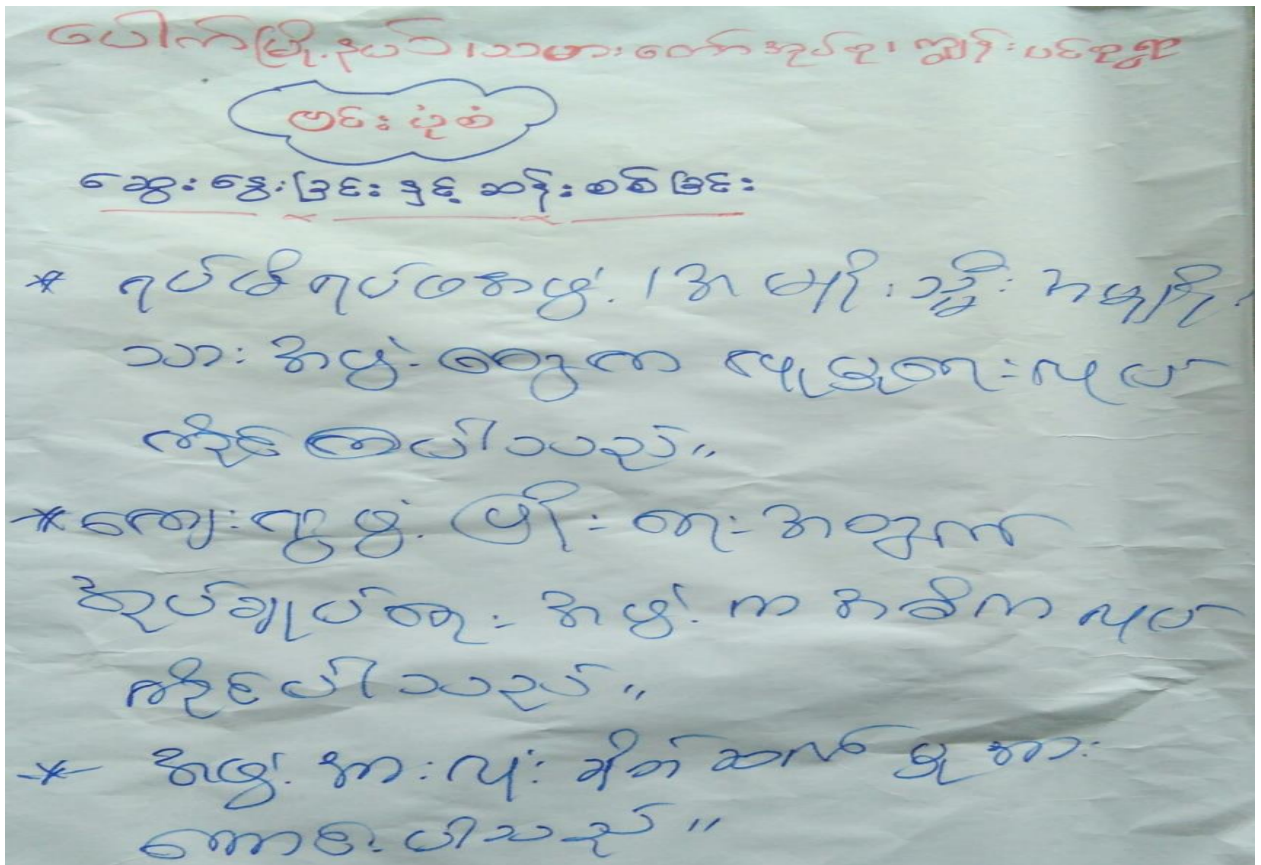 ပေါက်မြို့နယ်၊သမားတော်အုပ်စု၊ကျွန်းပင်စုရွာ
ဗင်းပုံစံ
ဆွေးနွေးခြင်းနှင့်ဆန်းစစ်ခြင်း
* ရပ်မိရပ်ဖအဖွဲ့၊အမျိုးသ္မီးအမျိုး
သားအဖွဲ့တွေက လူမှုရေးလုပ်
ကိုင်ကြပါသည်။
* ကျေးရွာဖွံ့ဖြိုးရေးအတွက်
အုပ်ချုပ်ရေးအဖွဲ့ကအဓိကလုပ်
ကိုင်ပါသည်။
* အဖွဲ့အားလုံးချိတ်ဆက်မှုအား
ကောင်းပါသည်။